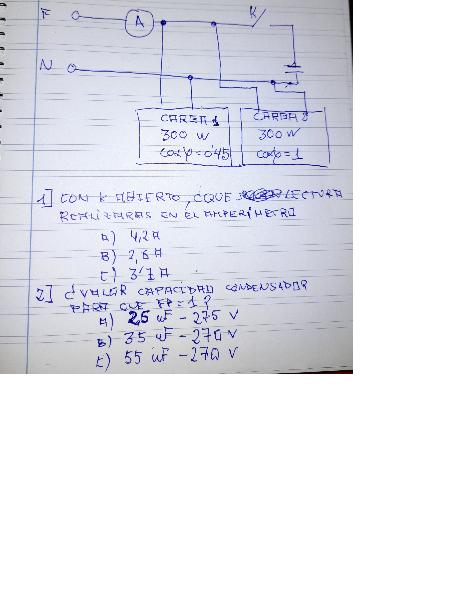 F A K
N
CARGA 1 CARGA 2
300 W 300 W
cosφ=0'45 cosφ=1
1] CON K ABIERTO, ¿QUE LECTURA
REALIZARAS EN EL AMPERIMETRO
A) 4,2A
B) 2,6A
C) 3'7A
2] ¿VALOR CAPACIDAD CONDENSADOR
PARA QUE FP=1?
A) 25 uF - 275 V
B) 35 uF - 270 V
C) 55 uF - 270 V